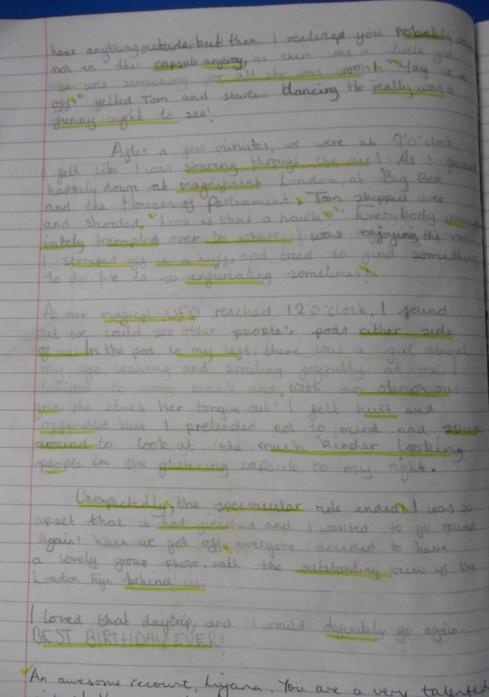 hear anything outside, but then I realized you probably
not in the capsule anyway, as there was a little girl
was screeching for all she was worth! "Yay we're
off" yelled Tom and started dancing. He really was a
funny sight to see!
After a few minutes, we were at 9 o'clock
I felt like I was soaring through the air! As I gazed
happily down at magnificent London, at Big Ben
and the Houses of Parliament, Tom skipped over
and shouted, "Look is that a hawk". Everybody
iately trampled over to where I was enjoying the view
I stomped off in a huff, and tried to find something
to do. He is so infuriating sometimes!
As our magical UFO reached 12 o'clock, I found
out we could see other people's pods either side
of us. In the pod to my left, there was a girl about
my age waving and smiling joyfully at me. I
decided to wave back and, with an obnoxious
she stuck her tongue out! I felt hurt and
offended but I pretended not to mind and spun
around to look at the much kinder looking
people in the glistening capsule to my right.
Unexpectedly, the spectacular ride ended, I was so
upset that it had finished and I wanted to go round
again! When we got off, everyone decided to have
a lovely group photo with the outstanding view of the
London Eye behind us.
I loved that daytrip, and I would definitely go again.
BEST BIRTHDAY EVER!
An awesome recount, Lujana. You are a very talented